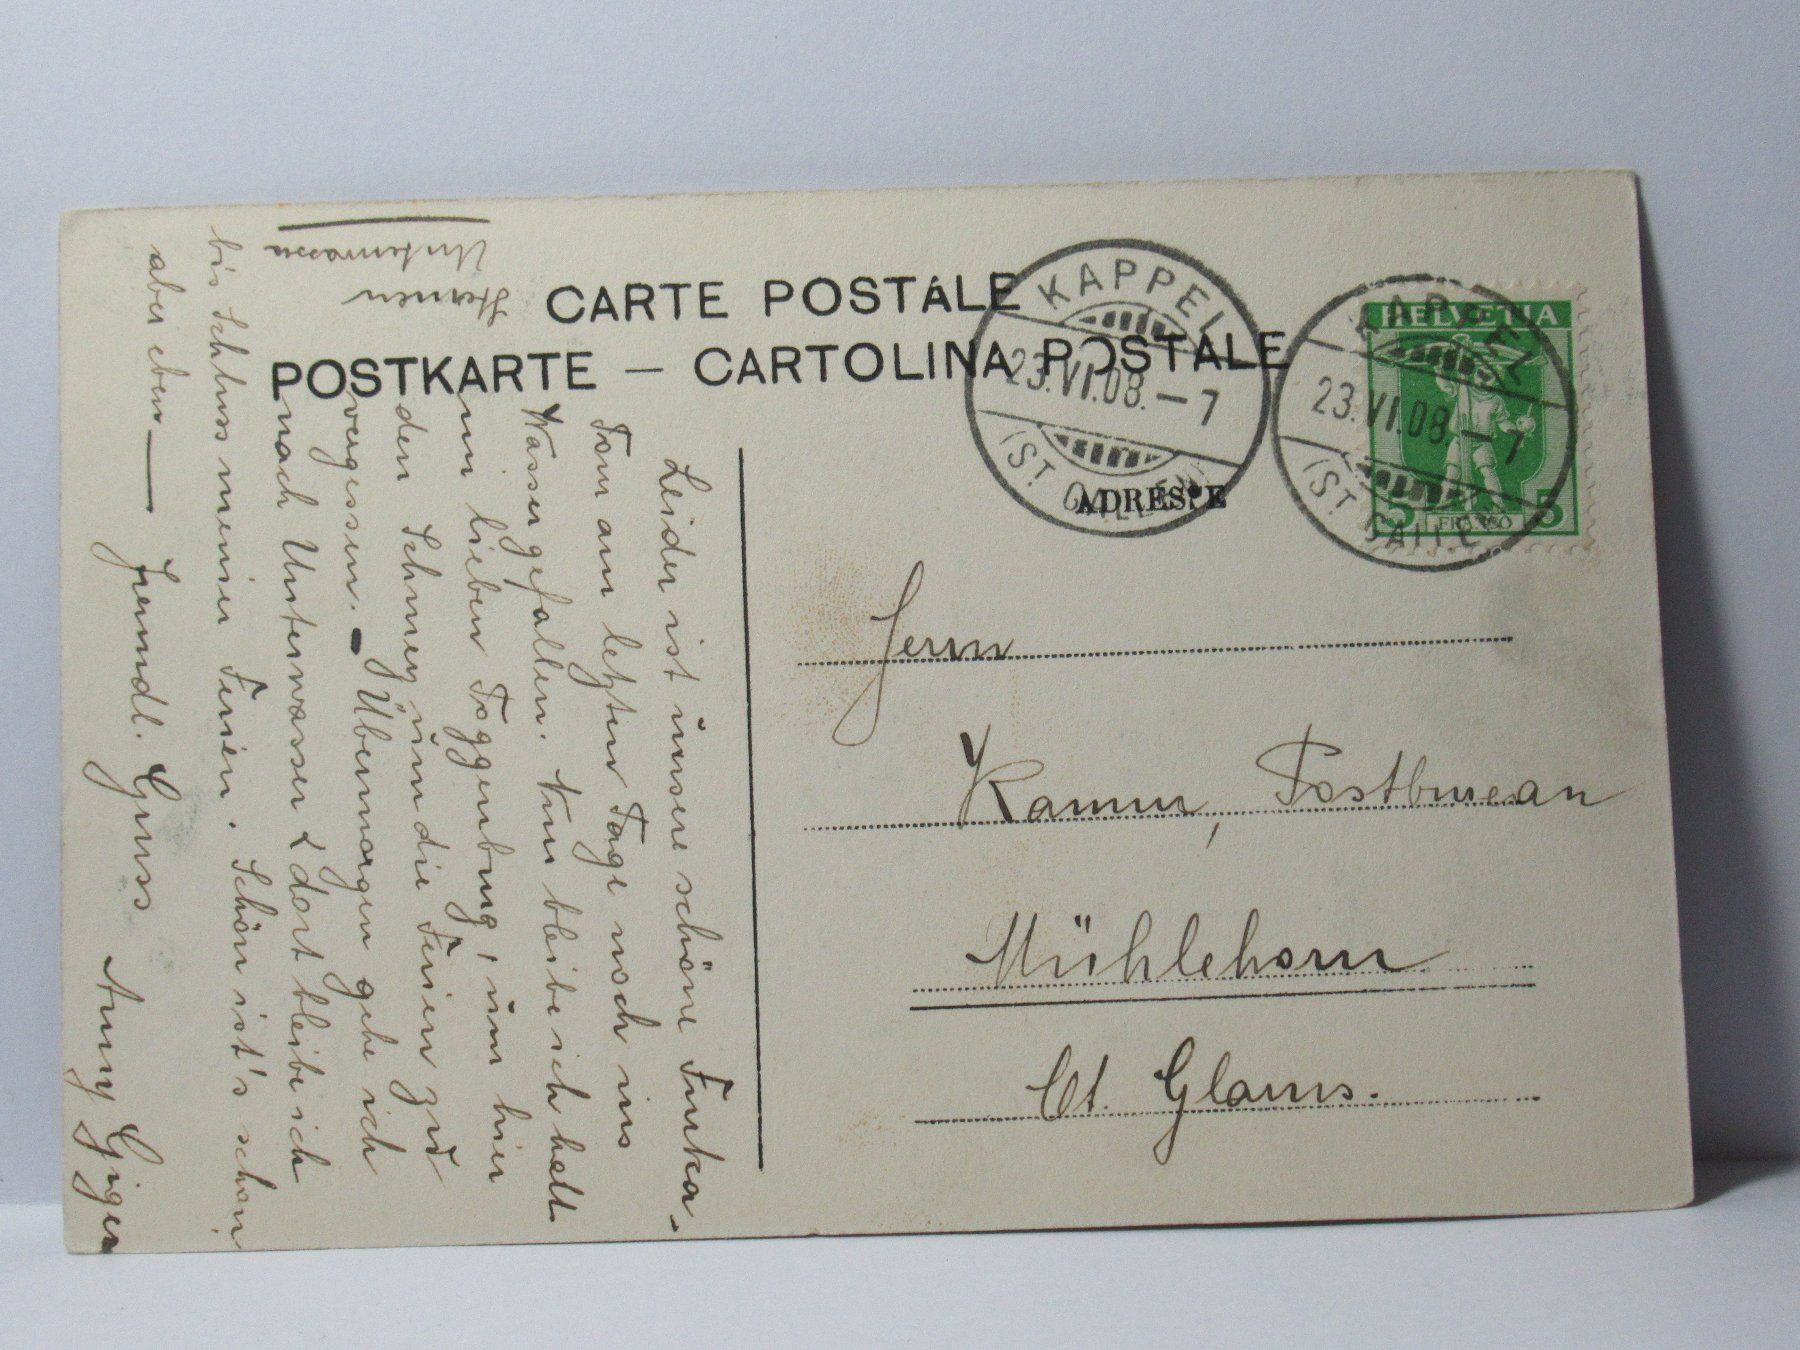 CARTE POSTALE
POSTKARTE — CARTOLINA POSTALE
ADRESSE
KAPPEL
23.VI.08.–7
(ST. GALLEN)
KAPPEL
23.VI.08.–7
(ST. GALLEN)
HELVETIA
5 FRANCO 5
Herrn
Kamm, Postbureau
Mühlehorn
Ct. Glarus.
Leider ist unsere schöne Furka-
Tour am letzten Tage noch ins
Wasser gefallen. Nun bleibe ich halt
im lieben Toggenburg, um hier
den Schmerz um die Ferien zu
vergessen. – Übermorgen gehe ich
nach Unterwasser & dort bleibe ich
bis Schluss meiner Ferien. Schön ist's schon,
aber eben —
freundl. Gruss
Anny Giger
Sternen
Unterwasser